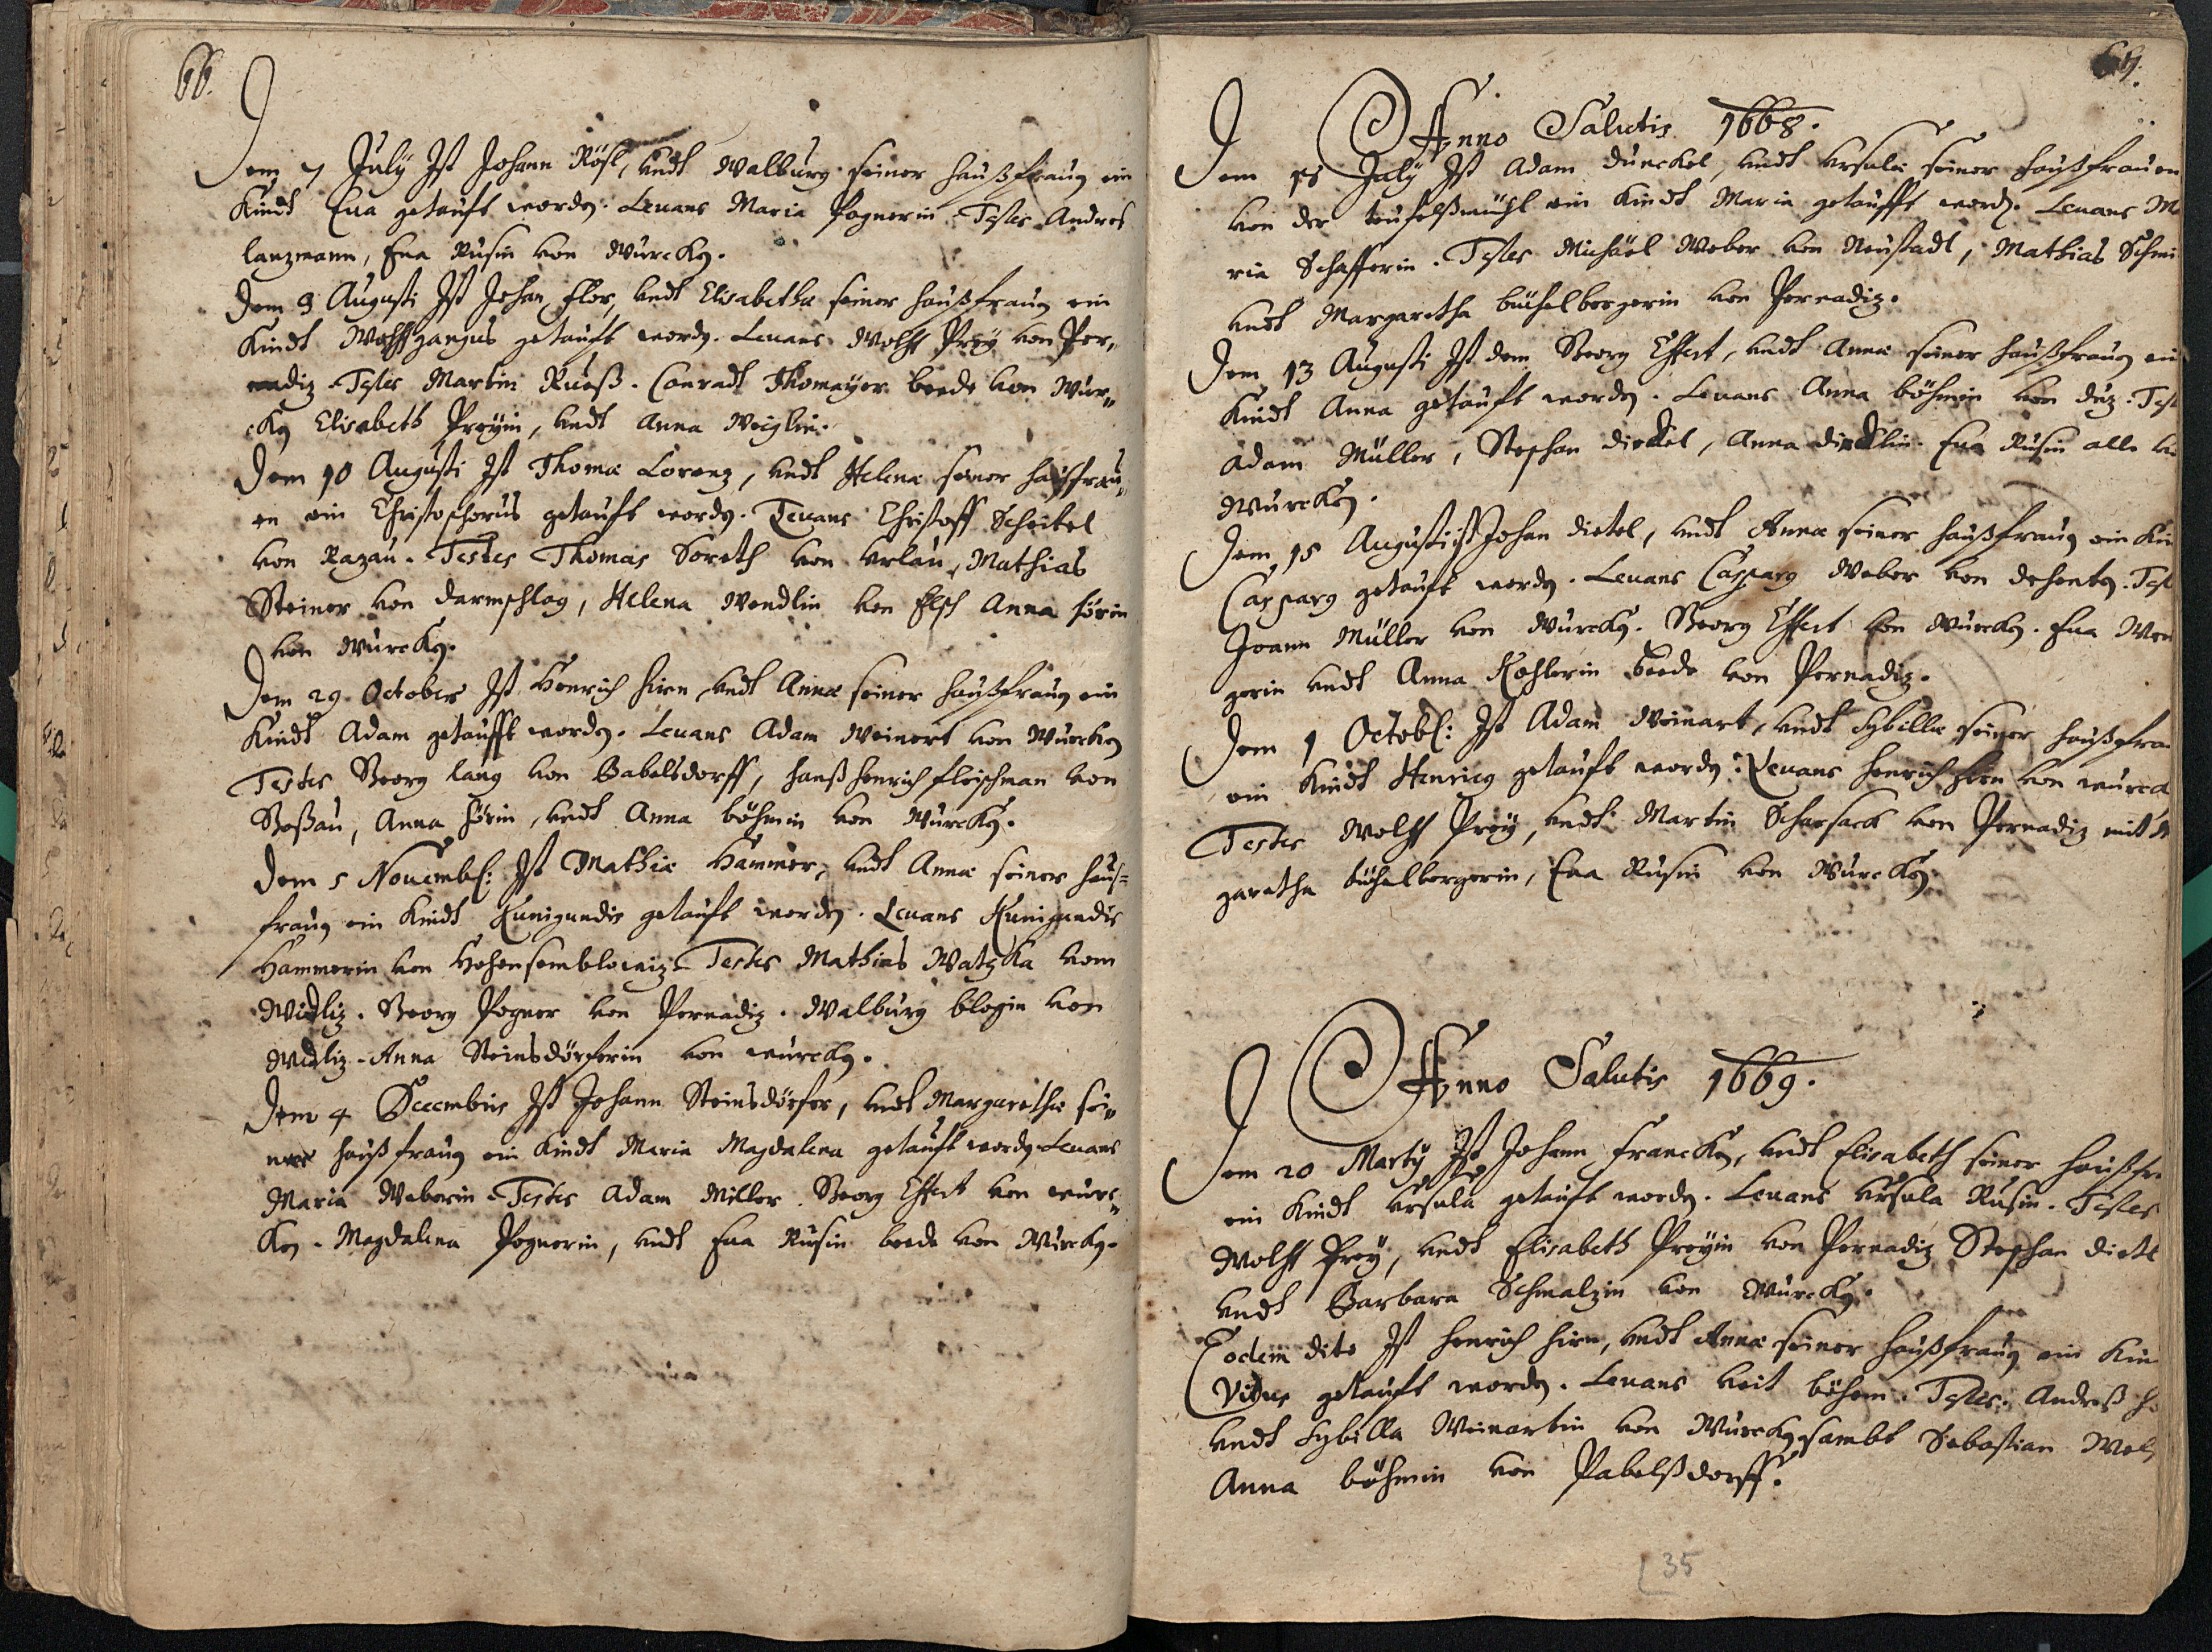 66.
Dem 7 July Ist Johann Rösl, undt Walburg seiner haußfrauen ein
Kindt Eua getauft worden. Leuans Maria Pognerin. Testes Andres
lanzmann, Eua Rusin von Wurcken.
Dem 3 Augusti Ist Johan Flor, undt Elisabetha seiner haußfrauen ein
Kindt Wolffgangus getauft worden. Leuans Wolff Prey von Per,,
nadiz. Testes Martin Rueß. Conradt Thomayer beede von Wur,,
cken Elisabeth Preyin, undt Anna Weiglin.
Dem 10 Augusti Ist Thomæ Lorenz, undt Helena seiner hausfrau,,
en ein Christophorus getauft worden. Leuans Christoff Scheitel
von Razau. Testes Thomas Soreth von Urlau, Mathias
Steiner von darmschlag, Helena Wendlin von Elsch Anna
von Wurcken.
Dem 29. October Ist Henrich hirn, undt Annæ seiner haußfrauen ein
Kindt Adam getaufft worden. Leuans Adam Weinert von Wurcken
Testes Georg lang von Babelsdorff, hanß henrich fleischman von
Goßau, Anna, undt Anna böhmin von Wurcken.
Dem 5 Nouemb: Ist Mathiæ Hammer, undt Annæ seiner hauß=
frauen ein Kindt Kunigundis getauft worden. Leuans Kunigundis
Hammerin von Hohensemblowiz. Testes Mathias Watzka vom
Widliz. Georg Pogner von Pernadiz. Walburg blogin von
Widliz. Anna Steinsdörferin von wurcken.
Dem 4 Decembris Ist Johann Steinsdörfer, undt Margaretha sei,,
ner haußfrauen ein Kindt Maria Magdalena getauft worden Leuans
Maria Weberin. Testes Adam Miller. Georg Effert von wurc,,
ken. Magdalena Pognerin, undt Eua Rusin beede von Wurcken.
67.
Anno Salutis 1668.
Dem July Ist Adam dunckel, undt Ursula seiner haußfrauen
von der teufelßmühl ein Kindt Maria getaufft worden. Leuans Ma
ria Schafferin. Testes Michäel Weber von Neustadt, Mathias Schmi
undt Margaretha büchelbergerin von Pernadiz.
Dem 13 Augusti Ist dem Georg Effert, undt Annæ seiner haußfrauen ein
Kindt Anna getauft worden. Leuans Anna böhmin von duz. Test
Adam Müller, Stephan dietel, Anna dietlin. Eua Rusin alle vo
Wurcken.
Dem 15 Augusti ist Johan dietel, undt Annæ seiner haußfrauen ein Kin
Casparg getauft worden. Leuans Casparg Weber von deheuten. Test
Joann Müller von Wurcken. Georg Effert von Wurcken. Eua Wen
gerin undt Anna Kohlerin beede von Pernadiz.
Dem 1 Octob: Ist Adam Weinart, undt Sybilla seiner haußfra
ein Kindt Henricg getauft worden. Leuans henrich hirn von wurck
Testes Wolff Prey, undt Martin Scharsack von Pernadiz mit Mar
garetha büchelbergerin, Eua Rusin von Wurcken.
Anno Salutis 1669.
Dem 20 Marty Ist Johann Francken, undt Elisabeth seiner haußfr
ein Kindt Ursula getauft worden. Leuans Ursula Rusin. Testes
Wolff Prey, undt Elisabeth Preyin von Pernadiz Stephan dietl
undt Barbara Schmalzin von Wurcken.
Eodem dito Ist henrich hirn, undt Annæ seiner haußfrauen ein Kin
Vitus getauft worden. Leuans Veit böhem. Testes. Andreß
undt Sybilla Weinartin von Wurcken sambt Sebastian Wel
Anna böhmin von Pabelßdorff.
35